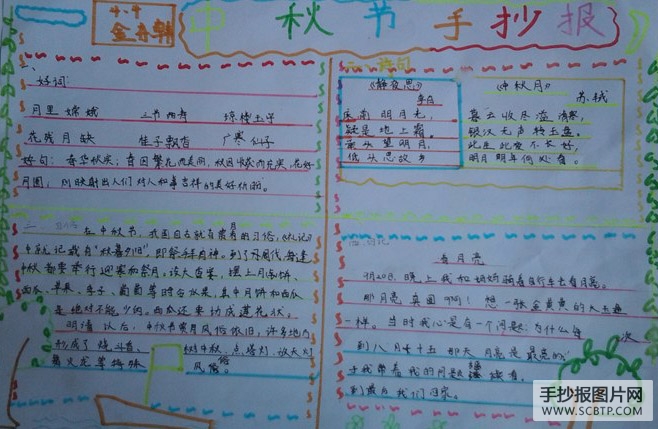 4.4
中秋节手抄报
一、
好词
月里嫦娥 琼楼玉宇
花残月缺 桂子飘香 广寒仙子
好句：春华秋实；春因繁花而美丽，秋因 而充实。花好
月圆，则映射出人们对人和事吉祥的美好祝愿。
二、诗句
《静夜思》
李白
床前明月光，
疑是地上霜。
举头望明月，
低头思故乡
《中秋月》
苏轼
暮云收尽溢清寒，
银汉无声转玉盘。
此生此夜不长好，
明月明年何处看。
三、
在中秋节，我国自古就有赏月的习俗，《礼记》
中就记载有“秋暮夕月”，即祭拜月神。到了周代，每逢
中秋都要举行迎寒和祭月。设大香案，摆上月饼、
西瓜、苹果、李子、葡萄等时令 ，其中月饼和西瓜
是绝对不能少的。西瓜还要切成莲花状。
明清以后，中秋节赏月风俗依旧，许多地方
形成了烧斗香、 树中秋、点塔灯、放天灯
舞火龙等特殊 风俗。
四、日记
看月亮
9月20日，晚上我和妈妈骑着自行车去看月亮。
那月亮真圆啊！想一张金黄黄的大玉盘
一样。当时我心里有一个问题：为什么每 次
到八月十五那天月亮是最亮的
于我带着我的问题 。
我们回家。
手抄报图片网
WWW.SCBTP.COM